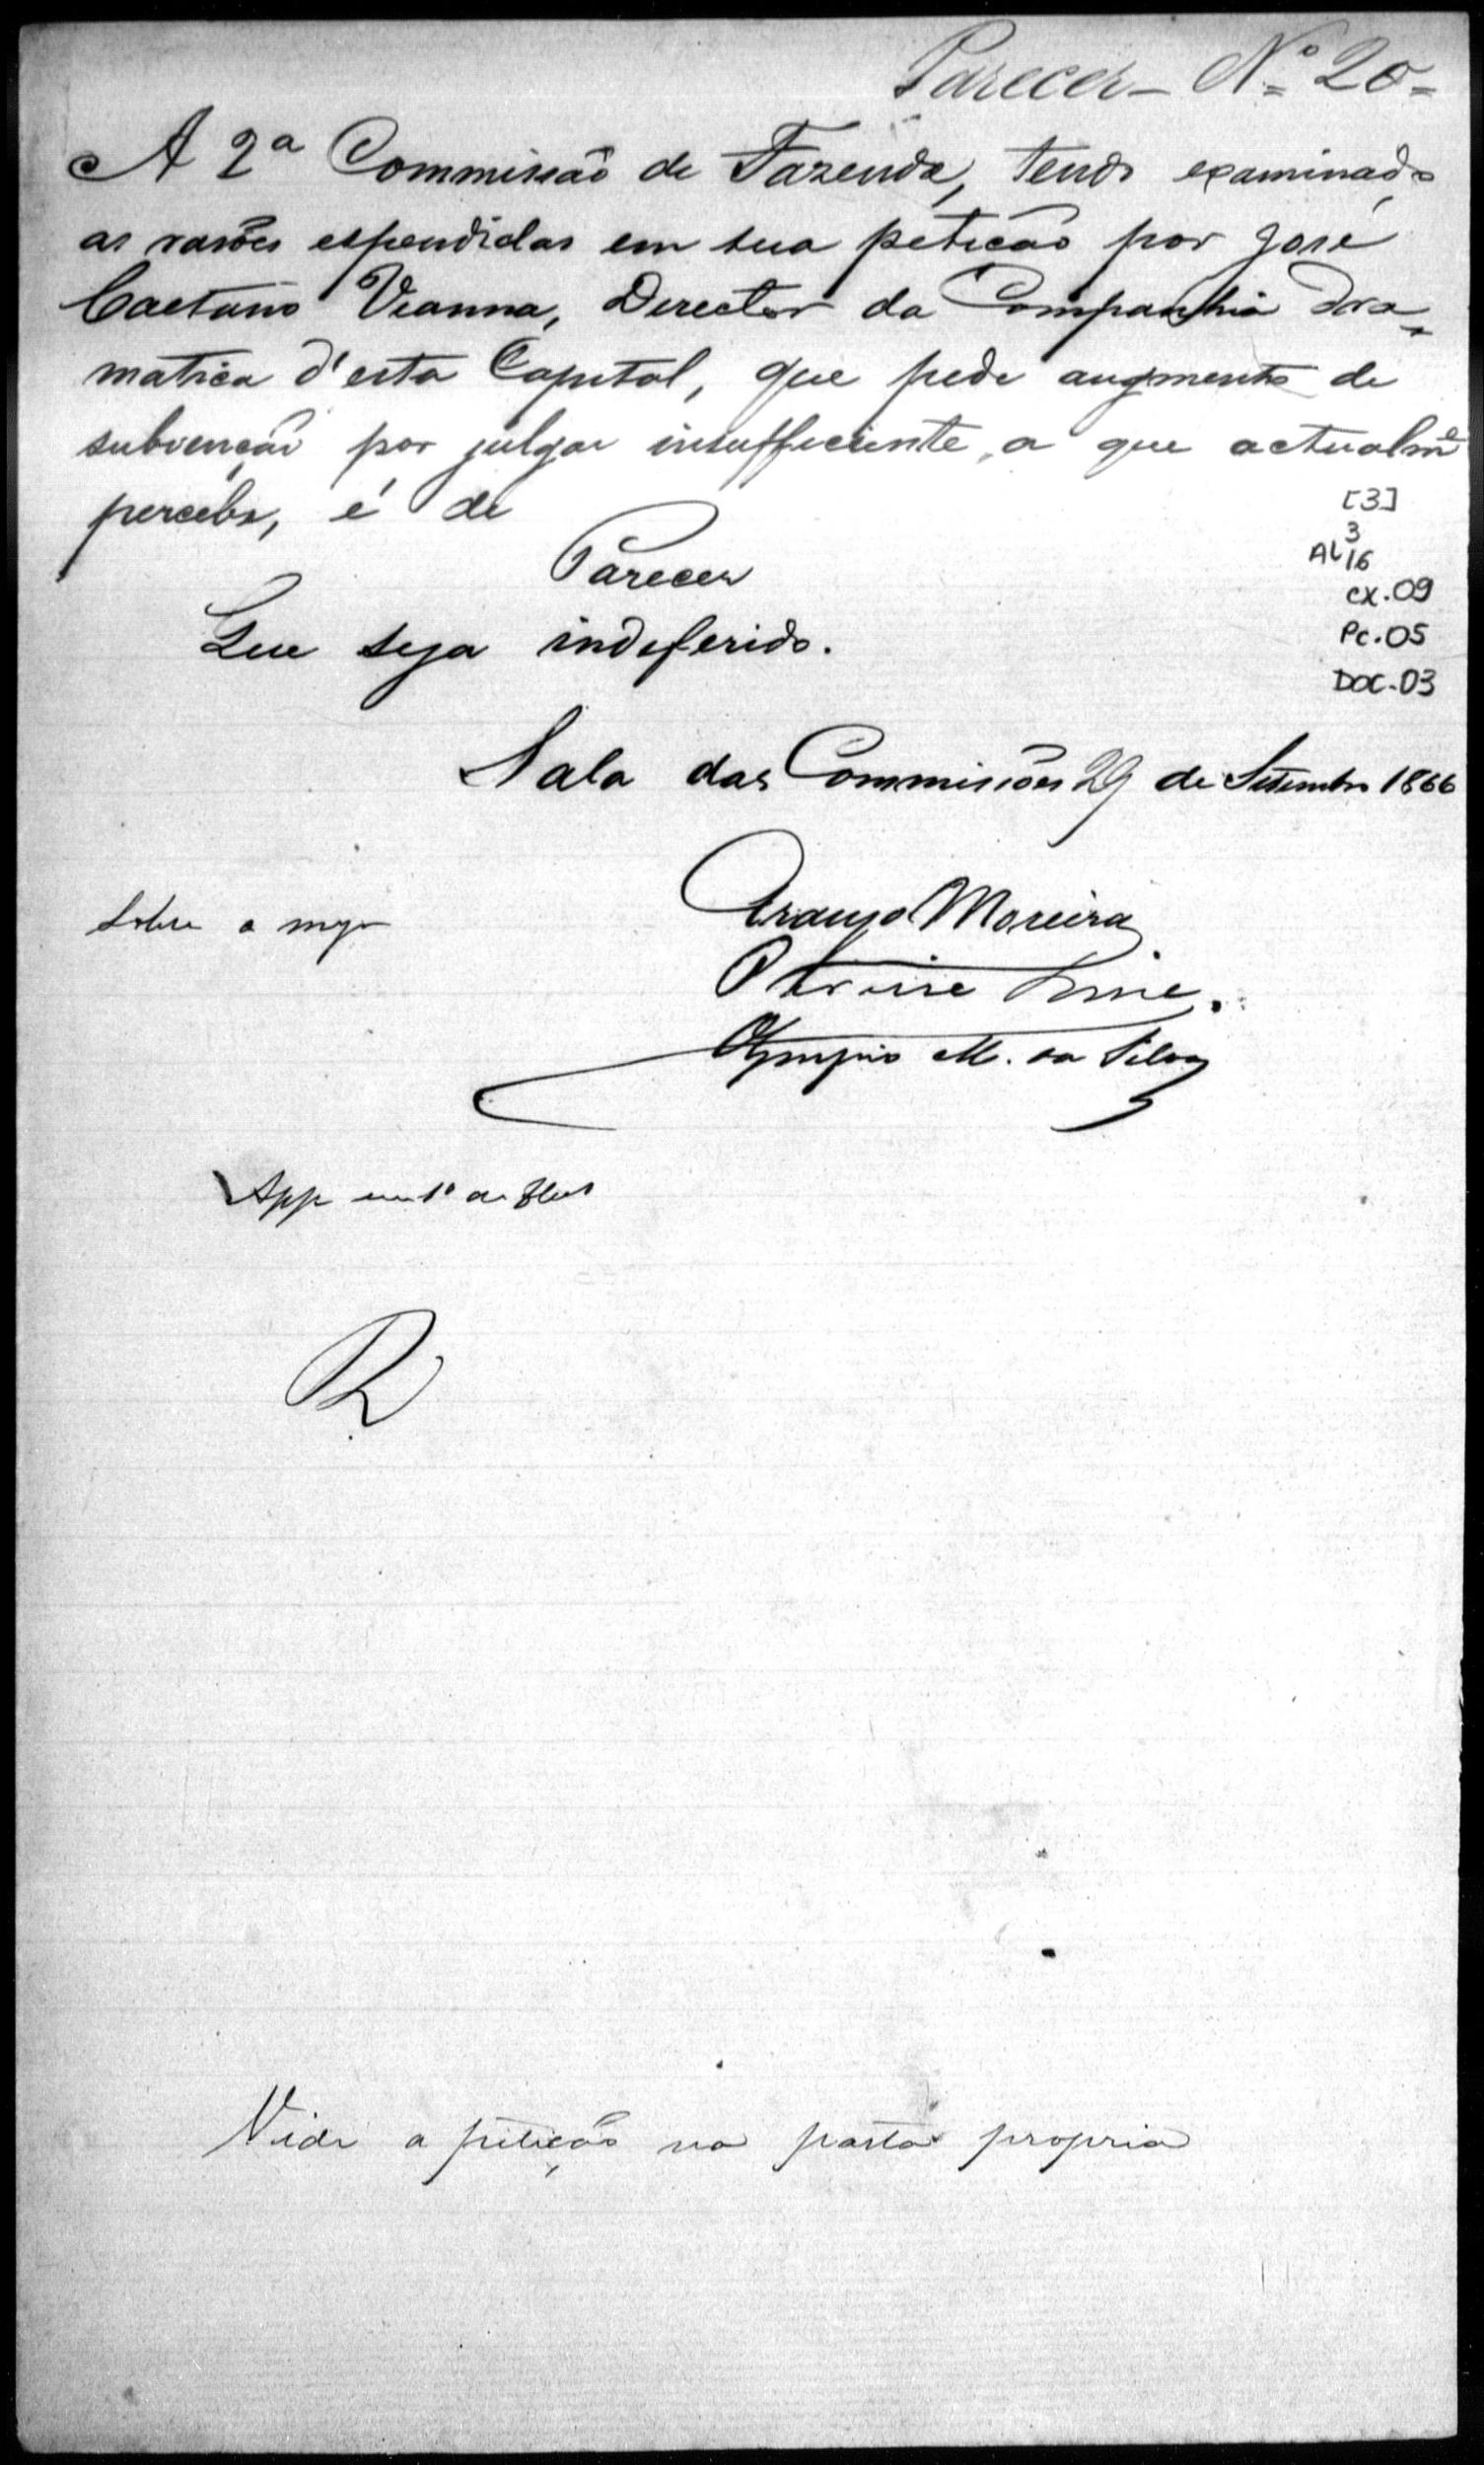 Parecer – Nº 20 =
A 2ª Commissão de Fazenda, tendo examinado
as rasões espendidas em sua petição por José
Caetano Vianna, Director da Companhia Dra=
matica d'esta Capital, que pede augmento de
subvenção por julgar insufficiente, a que actualmᵉ
percebe, é de
[3]
3
AL 16
cx.09
Pc.05
DOC.03
Parecer
Que seja indeferido.
Sala das Commissões 29 de Setembro 1866
Sobre a mesa
Araujo Moreira
Olympio M. da Silva
App em 1º de
R
Vide a petição na pasta propria